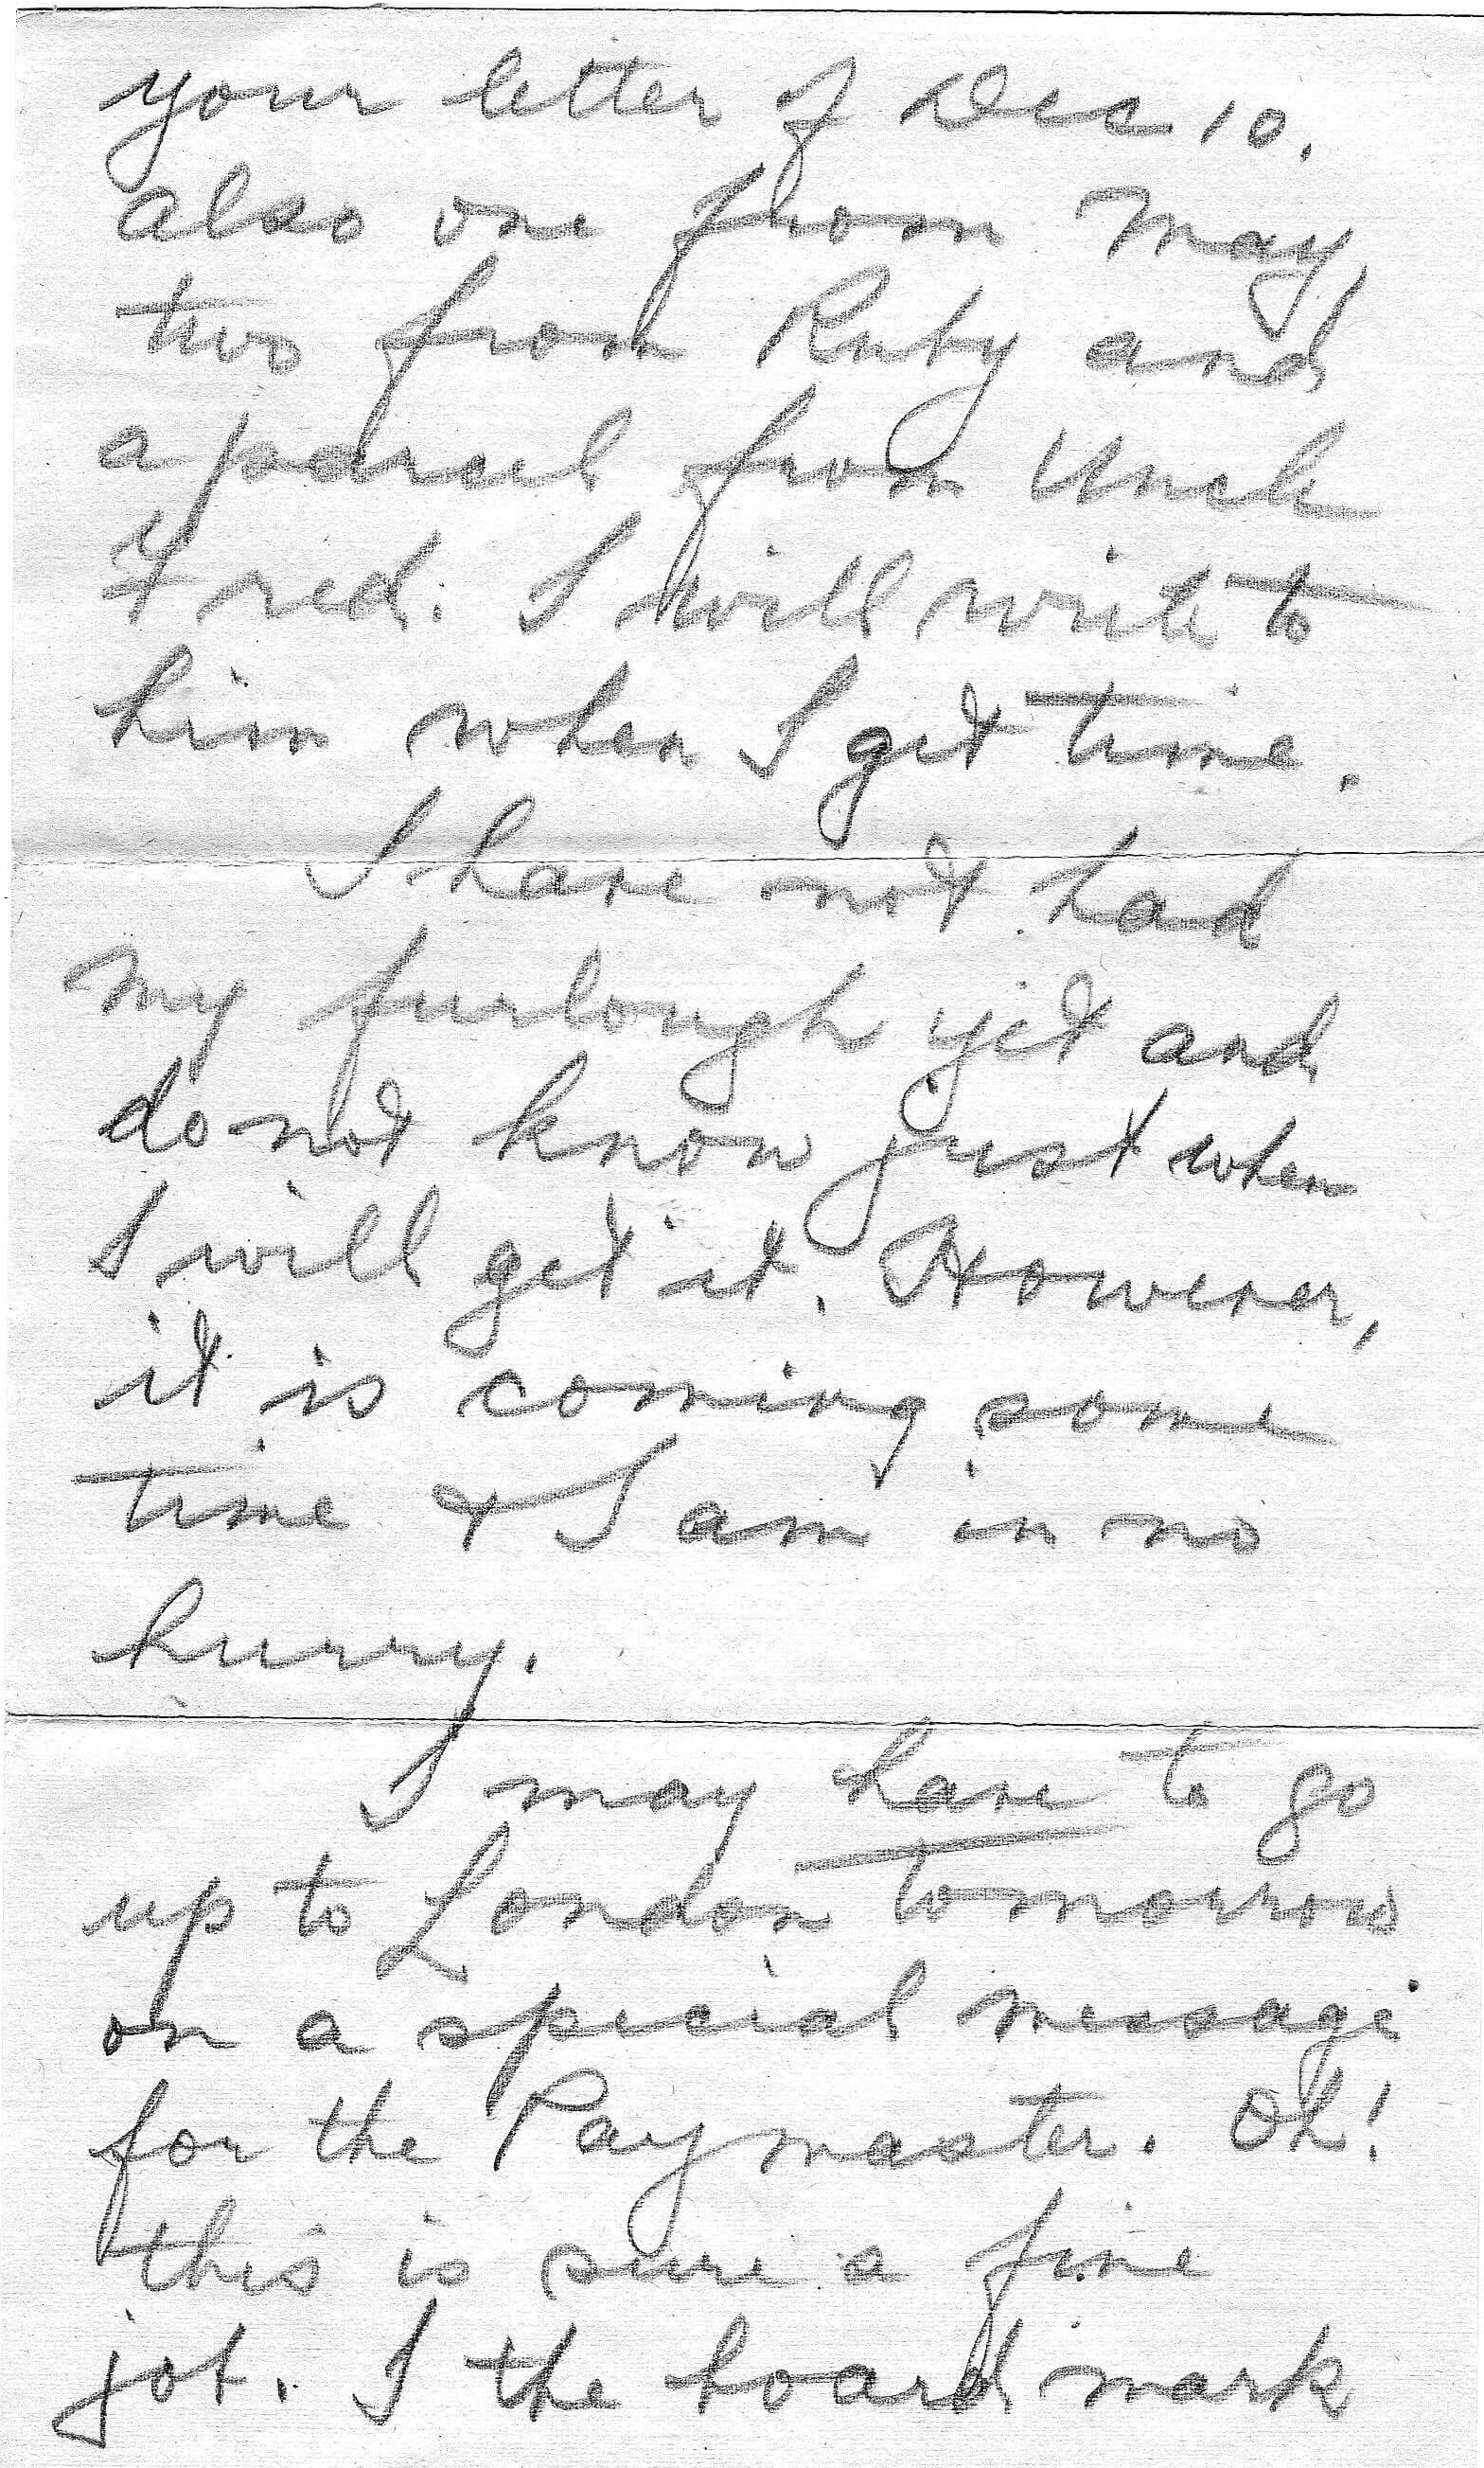 your letter of Dec 10.
also one from May,
two from Ruby and
a parcel from Uncle
Fred. I will write to
him when I get time.
I have not had
my furlough yet and
do not know just when
I will get it. However,
it is coming some
time + I am in no
hurry.
I may have to go
up to London tomorrow
on a special message
for the Paymaster. Oh!
this is sure a fine
job. I the board mark